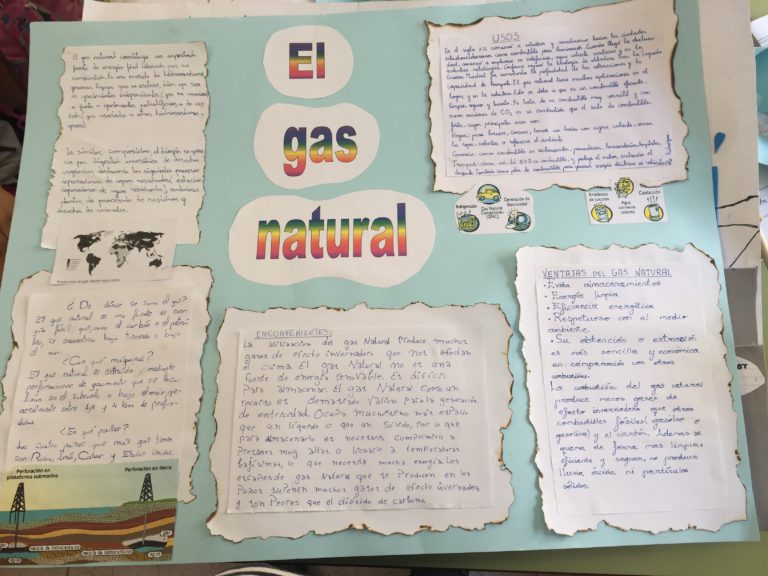 El
gas
natural
El gas natural constituye un importante
fuente de energía fósil liberada por su
combustión. Es una mezcla de hidrocarburos
gaseosos ligeros que se extrae, bien sea
de yacimientos independientes (gas no asociado)
o junto a yacimientos petrolíferos o de car-
bón (gas asociado a otros hidrocarburos y
gases).
De similar composición, el biogás se gene-
ra por digestión anaeróbica de desechos
orgánicos
depuradoras de aguas residuales (estación
depuradora de aguas residuales), vertederos
plantas de procesado de residuos y
desechos de animales.
Producción de gas natural según país
¿De dónde se saca el gas?
El gas natural es una fuente de ener-
gía fósil, que, como el carbón o el petró-
leo, se encuentra bajo tierra o bajo
el mar.
¿Con qué máquinas?
El gas natural es extraído mediante
perforaciones de yacimientos que se
en el subsuelo o bajo el mar ge-
neralmente entre y 4 km de profun-
didad.
¿En qué países?
Los cuatro países que más gas tienen
son Rusia, Irán, Catar y Estados Unidos.
Perforación en
plataforma submarina
Perforación en tierra
gas
mezcla de hidrocarburos
agua
mezcla de hidrocarburos
agua
INCONVENIENTES:
La utilización del gas Natural Produce muchos
gases de efecto invernadero que nos afectan
el clima. El gas Natural no es una
fuente de energía renovable. Es difícil
Para almacenar. El gas Natural como un
recurso es demasiado valioso para la generación
de electricidad. Ocupa muchísimo más espacio
que un líquido o que un Sólido, Por lo que
para almacenarlo es necesario comprimirlo a
Presiones muy altas o licuarle a temperaturas
bajísimas, lo que necesita mucha energía. Los
escapes de gas Natural que se Producen en los
Pozos suponen muchos gases de efecto invernadero
y son Peores que el dióxido de carbono.
USOS
En el siglo XIX comenzó a
estadounidenses como combustible para iluminación. Cuando llegó la electrici-
dad, comenzó a
industrias
Guerra Mundial fue aumentando la profundidad de las
capacidad de transporte. El gas natural tiene muchas aplicaciones en el
hogar y en la industria. Esto se debe a que es un combustible eficiente,
limpio, seguro y barato. Se trata de un combustible muy versátil y con
menos emisiones de CO2 en su combustión que el resto de combustibles
fósiles, cuyos principales usos son:
Hogar: para hornos, cocinas, tomar un baño con agua caliente, secar
la ropa, calentar o refrescar el ambiente.
Comercio: como combustible en restaurantes, panaderías, lavanderías, hospitales
Refrigeración
Gas Natural
Comprimido
(GNC)
Generación de
Electricidad
Artefactos
de cocción
Agua
corriente
caliente
Calefacción
VENTAJAS del GAS NATURAL
• Evita almacenamientos
• Energía limpia
• Eficiencia energética
• Respetuoso con el medio
ambiente.
• Su obtención o extracción
es más sencilla y económica
en comparación con otros
combustibles.
La combustión del gas natural
produce menos gases de
efecto invernadero que otros
combustibles fósiles (gasóleo o
gasolina) y el carbón. Además se
quema de forma más limpia,
eficiente y segura, no produce
lluvia ácida, ni partículas
sólidas.